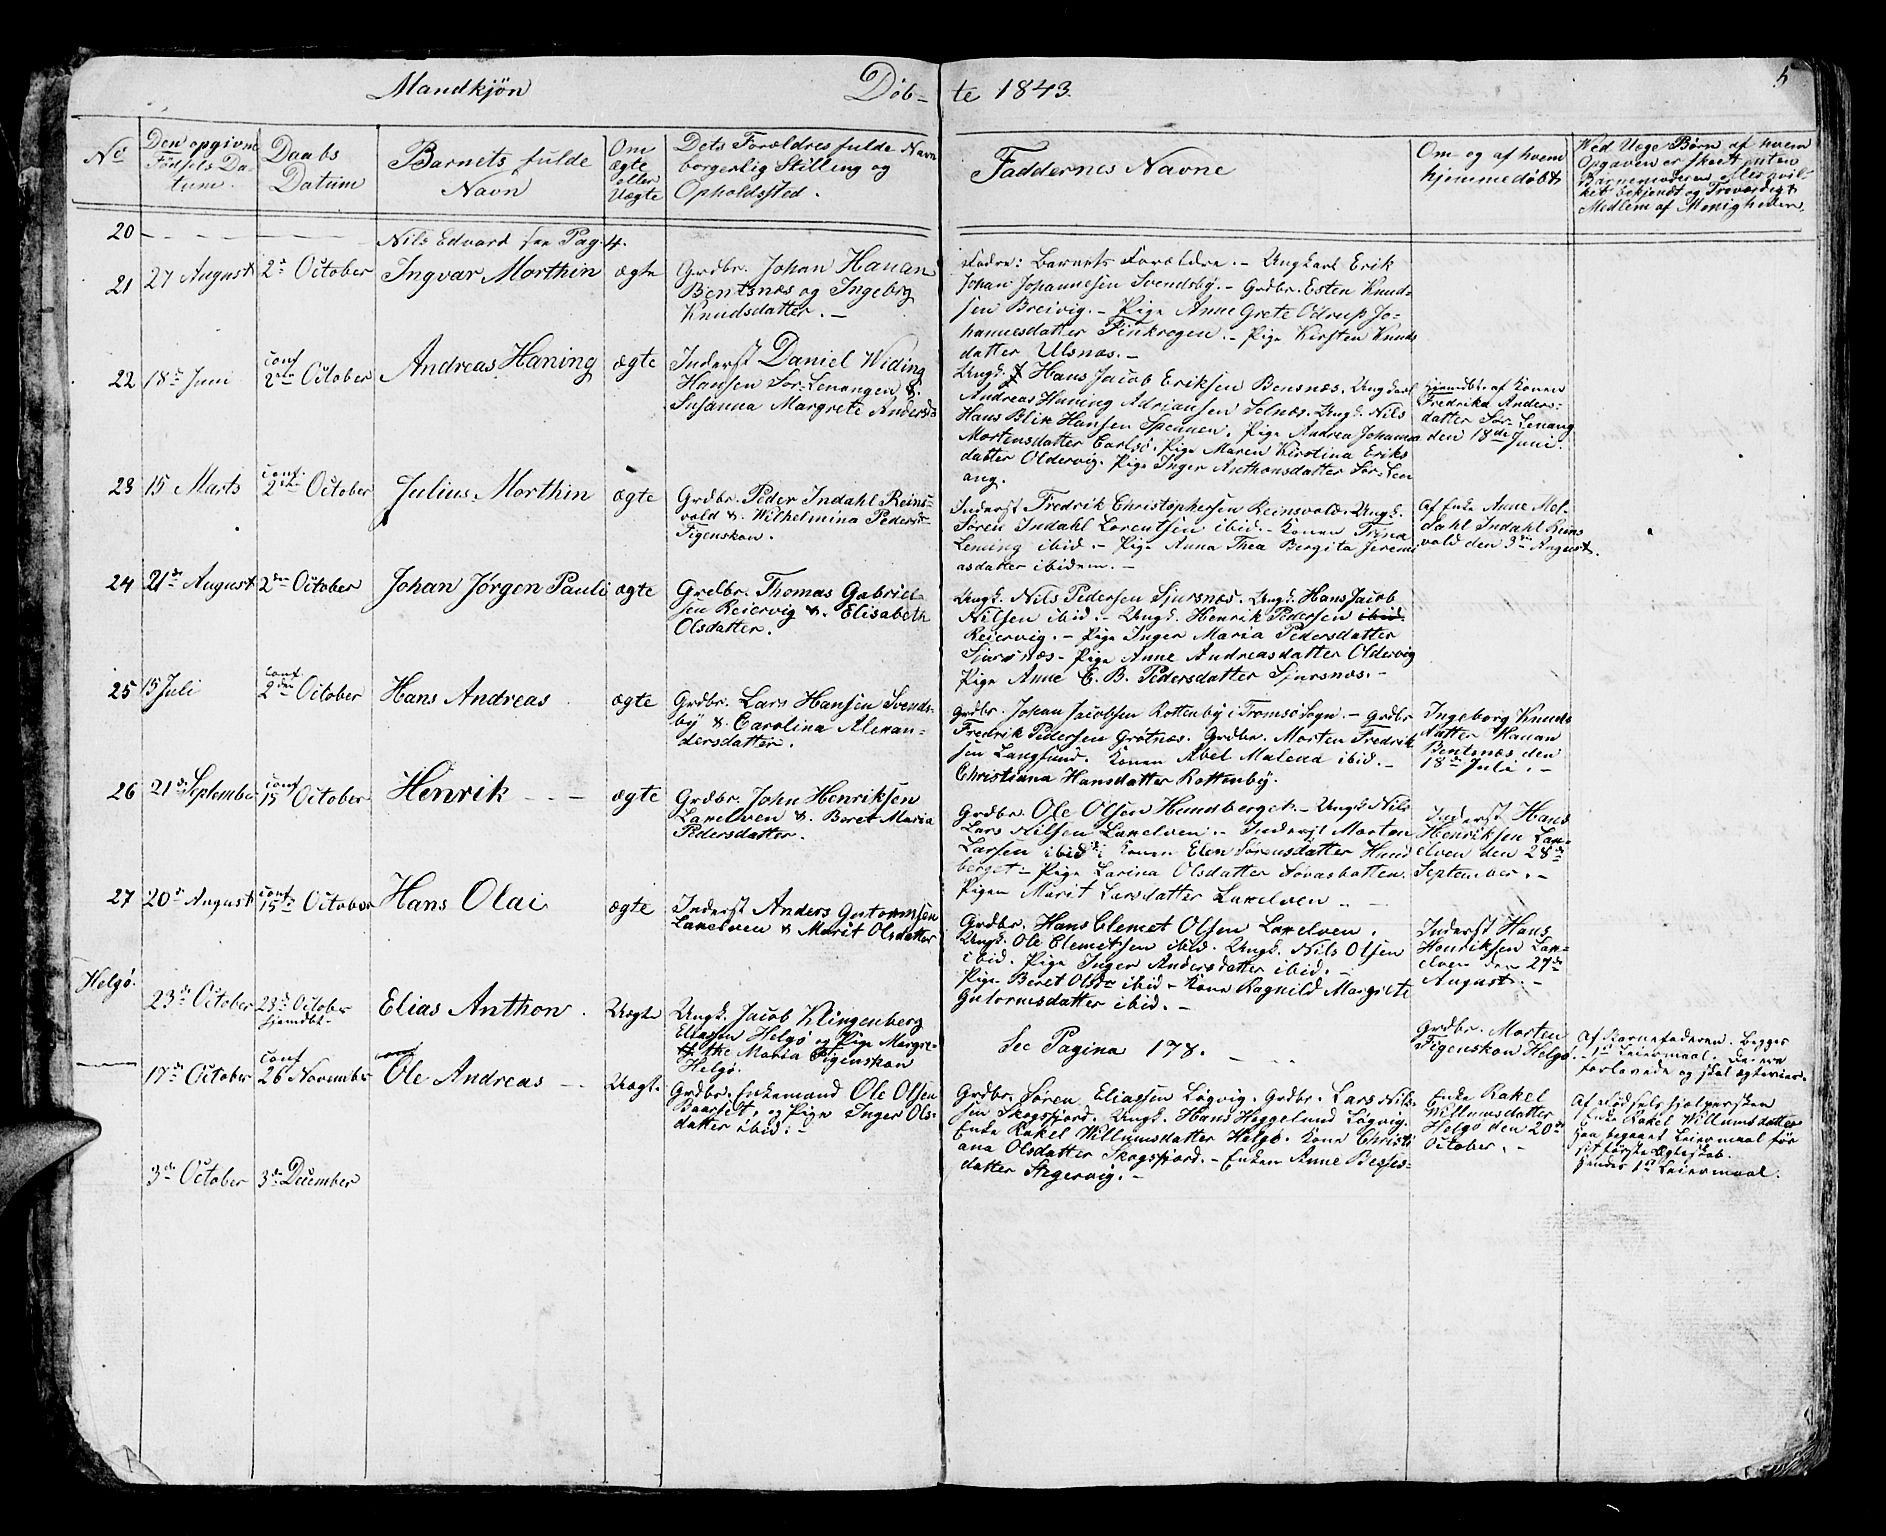 Mandkjön Döb- te 1843. 5
No
Den opgivne
Födsels Da-
tum.
Daabs
Datum
Barnets fulde
Navn
Om
ægte
eller
Uægte
Dets Forældres fulde Navn
borgerlig Stilling og
Opholdssted.
Faddernes Navne
Om og af hvem
hjemmedöbt
Ved Uægte Börn af hvem
Opgaven er skeet enten
Barnemoderen eller hvil-
ket bekjendt og Troværdigt
Medlem af Menigheden.
20 - - - - Nils Edvard see Pag. 4.
21
27 August
2n October
Ingvar Morthin
ægte
Grdbr. Johan Hanan
Bentsnæs og Ingeborg
Knudsdatter. -
Fadre: Barnets Forældre. - Ungkarl Erik
Johan Johannesen Svendsby. - Grdbr. Esten Knud-
sen Breivig. - Pige Anne Grete Odrup Jo-
hannesdatter Finkrogen - Pige Kirsten Knuds
datter Ulsnæs. -
22
18de Juni
Conf
2den October
Andreas Haning
ægte
Inderst Daniel Widing
Hansen Sör-Lenangen &
Susanna Margrete Andersd
Ungk. Hans Jacob Eriksen Bensnæs. Ungkarl
Andreas Haning Adriansen Selnæs. Ungk. Nils
Hans Blix Hansen Spennen. Pige Andrea Johanna
Mortensdatter Carlsö. Pige Maren Kirstina Eriks
datter Oldervig. Pige Inger Anthonsdatter Sör-Len
ang.
Hjemdbt. af Konen
Fredrika Anders-
datter Sör-Lenang
den 18de Juni.
23
15 Marts
Conf.
2den October
Julius Morthin
ægte
Grdbr. Peder Indahl Reins-
vold & Wilhelmina Pedersd-
Figenskou.
Inderst Fredrik Christophersen Reinsvold. Ungk.
Sören Indahl Lorentsen ibid. - Konen Trina
Lening ibid. - Pige Anna Thea Bergita Jeremi
asdatter ibidem. -
Af Enke Anne Mel-
dahl Indahl Reins
vold den 3die August.
24
21de August
2den October
Johan Jörgen Pauli
ægte
Grdbr. Thomas Gabriel-
sen Reiervig & Elisabeth
Olsdatter.
Ungk. Nils Pedersen Sjursnæs. Ungk. Hans Jacob
Nilsen ibid. - Ungk. Henrik Pedersen ibid.
Reiervig. - Pige Inger Maria Pedersdatter
Sjursnæs - Pige Anne Andreasdatter Oldervig
Pige Anne E. B. Pedersdatter Sjursnæs. -
25
15 Juli
Conf
2den October
Hans Andreas
ægte
Grdbr. Lars Hansen Svends-
by & Carolina Alexan-
dersdatter.
Grdbr. Johan Jacobsen Rottenby i Tromsö Sogn. - Grdbr
Fredrik Pedersen Grötnæs. Grdbr. Morten Fredrik
sen Langsund. Konen Abel Malena ibid. -
Christiana Hansdatter Rottenby.
Ingeborg Knuds
datter Hanan
Bentsnæs den
18de Juli. -
26
21de September
Conf
15 October
Henrik - - -
ægte
Grdbr. John Henriksen
Laxelven & Beret Maria
Pedersdatter.
Grdbr. Ole Olsen Hundberget. - Ungk. Nils
Lars Nilsen Laxelven. - Inderst Morten
Larsen ibid; Konen Elen Sörensdatter Hund
berget - Pige Larina Olsdatter Sövasbotten.
Pigen Marit Larsdatter Laxelven. -
Inderst Hans
Henriksen Lax-
elven den 28de
September. -
27
20de August
Conf
15de October
Hans Olai
ægte
Inderst Anders Gutormsen
Laxelven & Marit Olsdatter
Grdbr. Hans Clemet Olsen Laxelven.
Ungk. Ole Clemetsen ibid. Ungk. Nils Olsen
ibid. Pige Inger Andersdatter ibid. -
Pige Beret Olsdr ibid - Kone Ragnild Margrete
Gutormsdatter ibid. -
Inderst Hans
Henriksen Lax-
elven den 27de
August. -
Helgö.
23de October
23de October
hjemdbt-
Elias Anthon.
Uægte
Ungk. Jacob Klingenberg
Eliassen Helgö og Pige Margre-
the Maria Figenskou
Helgö.
See Pagina 178. - - -
Grdbr. Morten
Figenskou Helgö
Af Barnefaderen. Begges
1ste Leiermaal. De ere
forlovede og skal ægtevies.
17de October
Conf
26 November
Ole Andreas - -
Uægte
Grdbr. Enkemand Ole Olsen
Baarset, og Pige Inger Ols-
datter ibid: -
Grdbr. Sören Eliassen Lögvig. Grdbr. Lars Nils-
sen Skogsfjord. Ungk. Hans Heggelund Lögvig.
Enke Rakel Willumsdatter Helgö. Kone Christi
ana Olsdatter Skogsfjord. - Enken Anne Besses-
datter Stegervig. -
Enke Rakel
Willumsdatter
Helgö den 20de
October. -
Af Födselshjelpersken
Enke Rakel Willumsdatter
Han begaaet Leiermaal før
sit förste Ægteskab.
Hendes 1ste Leiermaal.
3de October
3de December